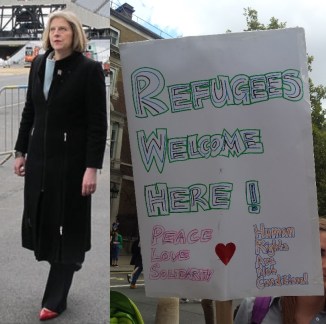 REFUGEES
WELCOME
HERE!
PEACE
LOVE
SOLIDARITY
Human
Rights
Are
Not
Conditional